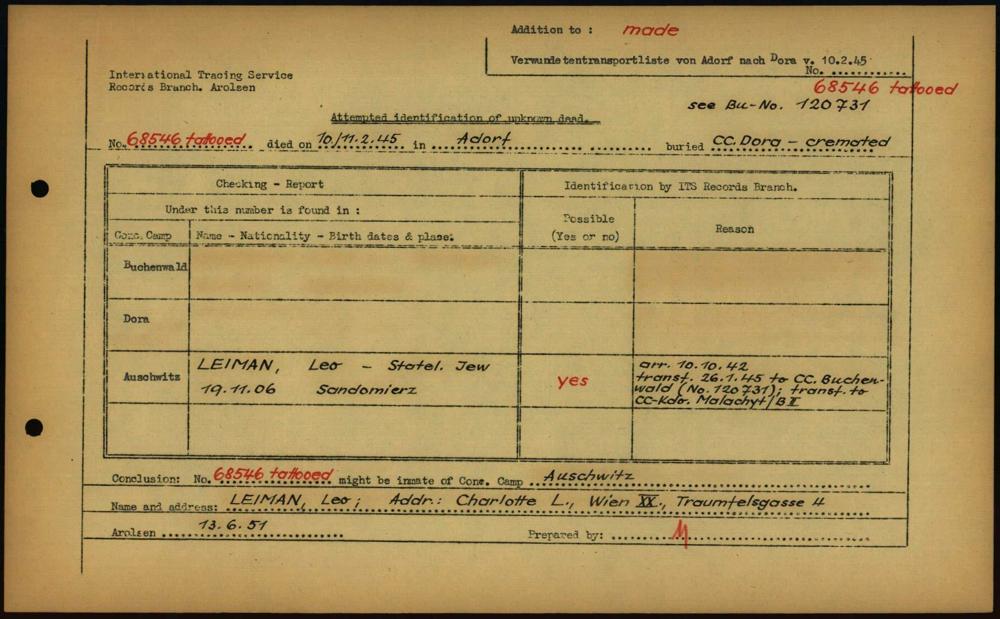 Addition to : made
Verwundetentransportliste von Adorf nach Dora v. 10.2.45
No. ............
68546 tattooed
International Tracing Service
Records Branch. Arolsen
see Bu-No. 120731
Attempted identification of unknown dead.
No. 68546 tattooed died on 10/11.2.45 in Adorf buried CC. Dora - cremated
Checking - Report
Identification by ITS Records Branch.
Under this number is found in :
Possible
(Yes or no)
Reason
Conc. Camp
Name - Nationality - Birth dates & place.
Buchenwald
Dora
Auschwitz
LEIMAN, Leo - Statel. Jew
19.11.06 Sandomierz
yes
arr. 10.10.42
transf. 26.1.45 to CC. Buchen-
wald (No. 120731); transf. to
CC-Kdo. Malachyt/B II
Conclusion: No. 68546 tattooed might be inmate of Conc. Camp Auschwitz
Name and address: LEIMAN, Leo; Addr.: Charlotte L., Wien XX., Traumfelsgasse 4
Arolsen 13.6.51
Prepared by: